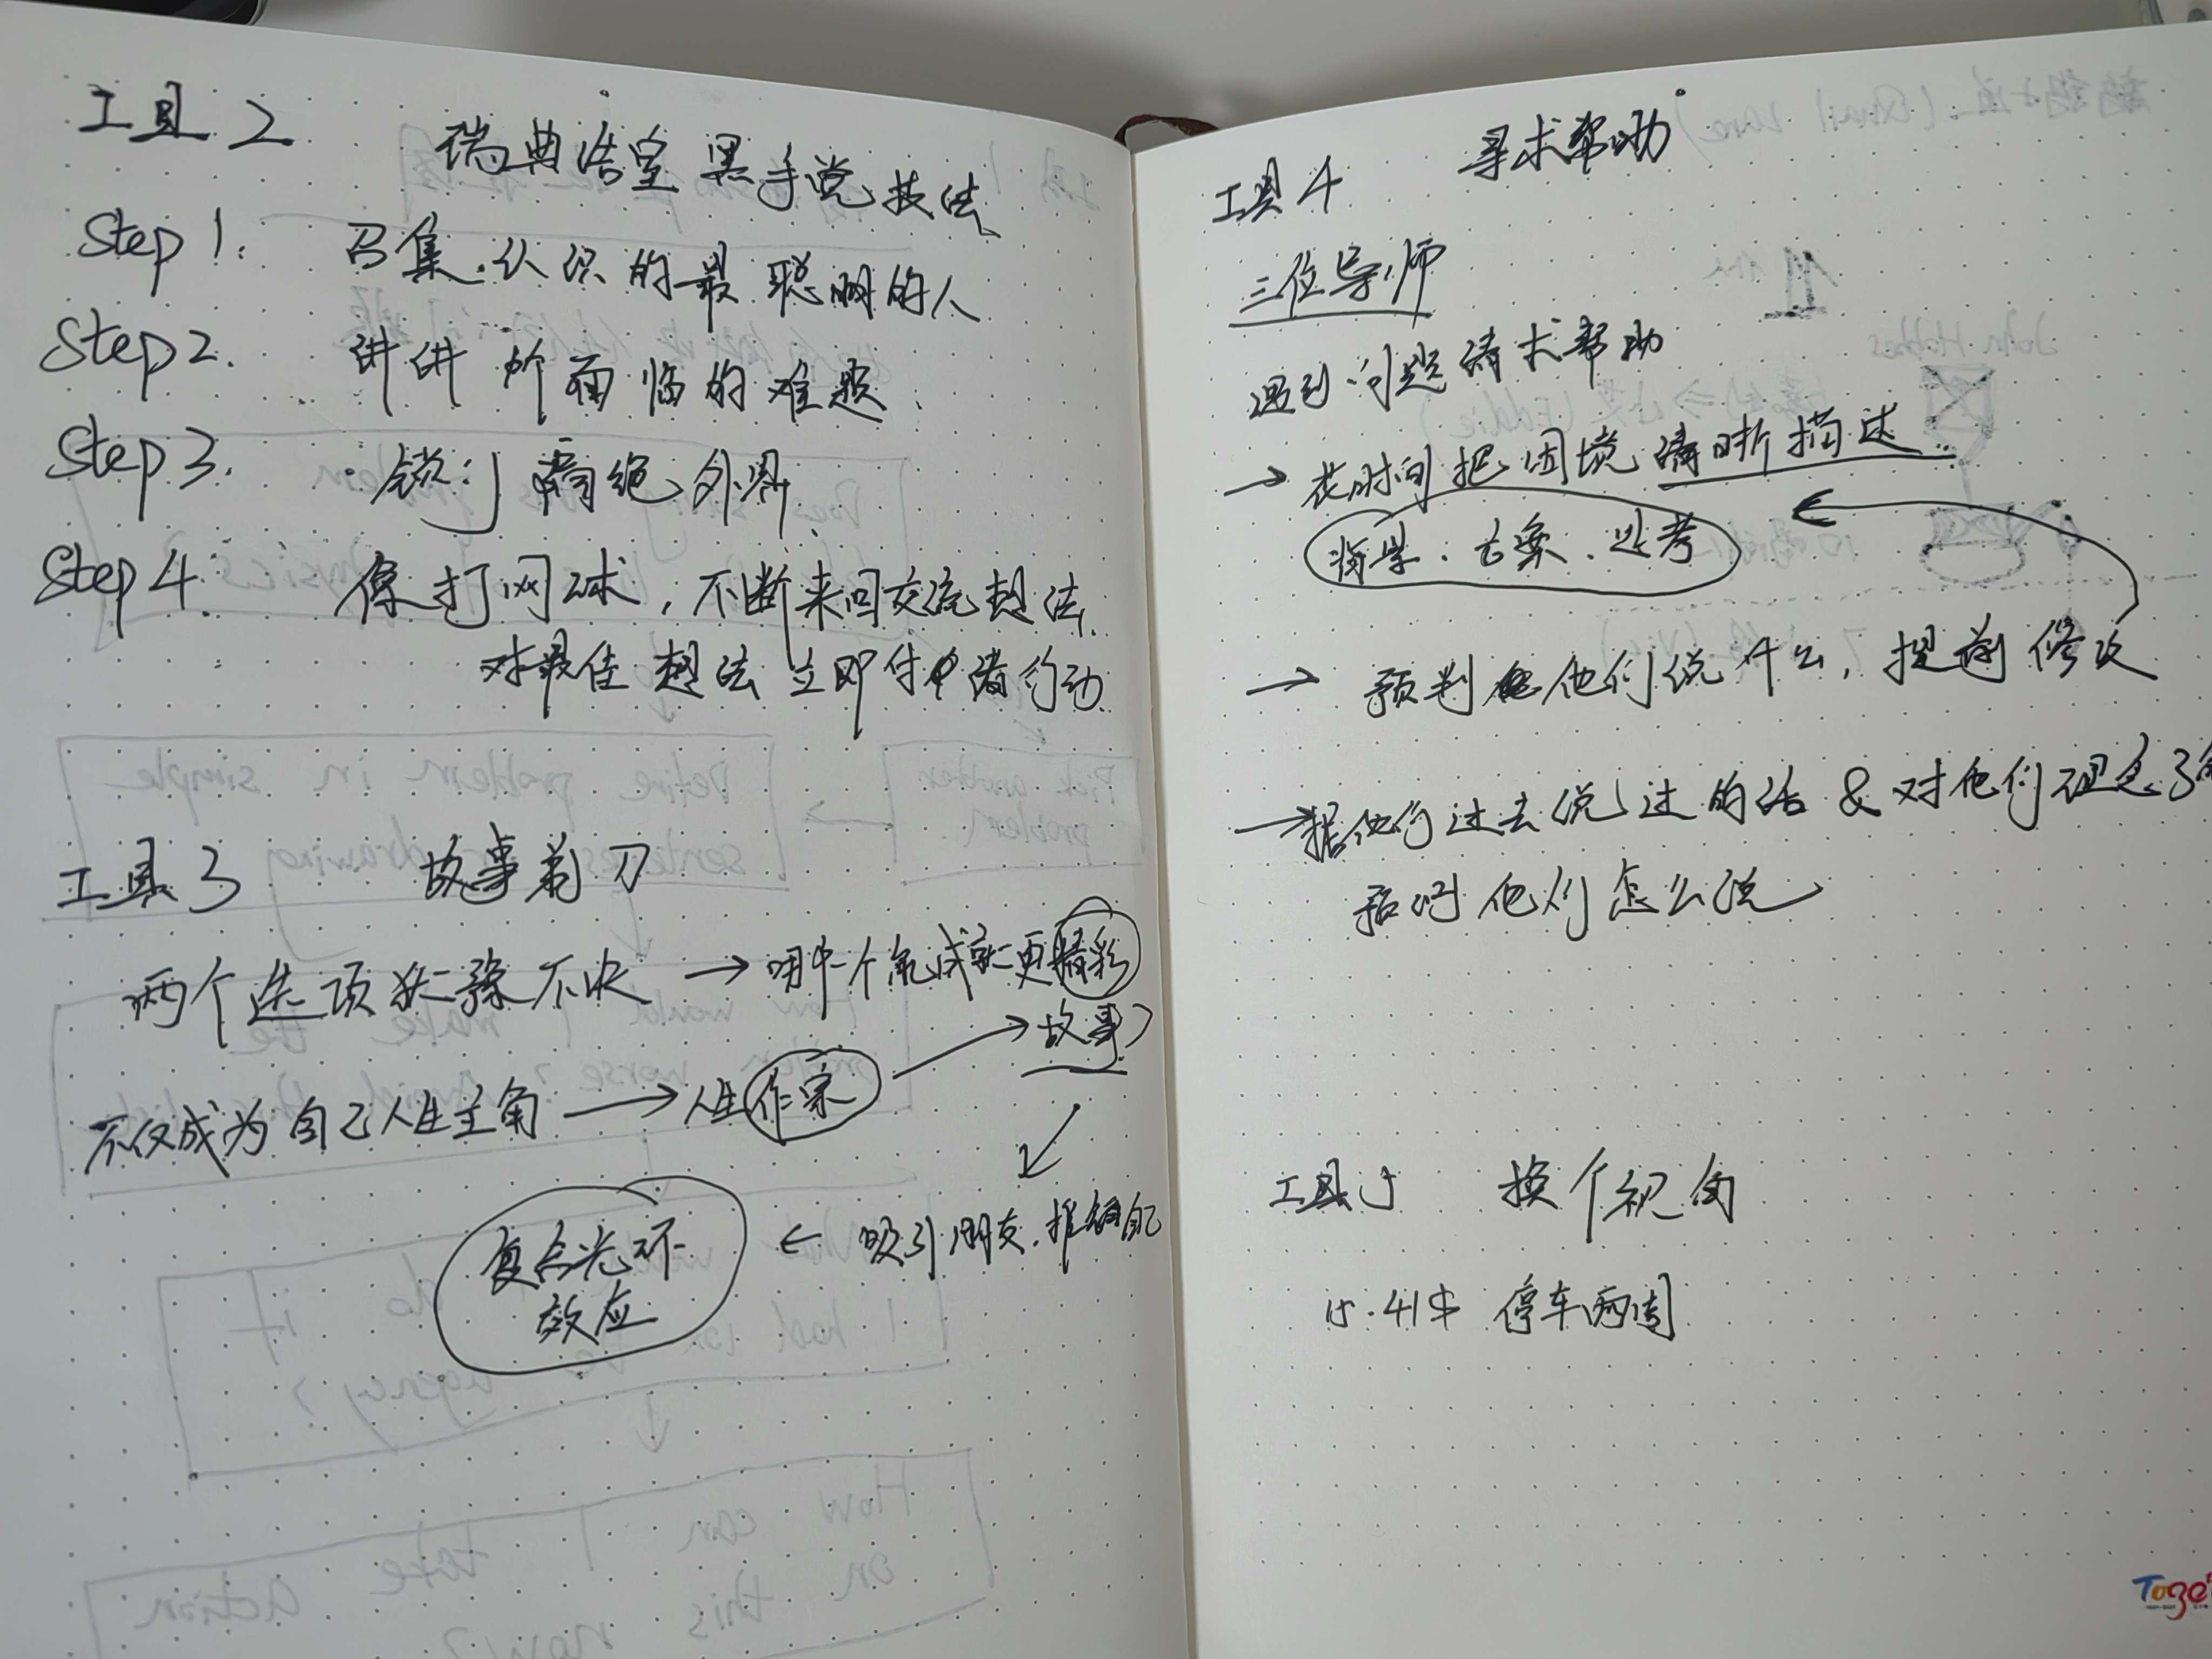 工具2 瑞典浩室黑手党技法
Step 1. 召集认识的最聪明的人
Step 2. 讲讲所面临的难题
Step 3. 锁门隔绝外界
Step 4. 像打网球，不断来回交流想法
对最佳想法立即付诸行动
工具3 故事剃刀
两个选项犹豫不决 → 哪一个能成就更精彩
故事
不仅成为自己人生主角 → 人生作家
吸引朋友.推销自己
复合光环
效应
工具4 寻求帮助
三位导师
遇到问题请求帮助
→ 花时间把困境清晰描述
背景.方案.思考
→ 预判他们说什么，提前修改
→ 据他们过去说过的话 & 对他们
他们怎么说
工具5 换个视角
15.41$ 停车两周
Toge